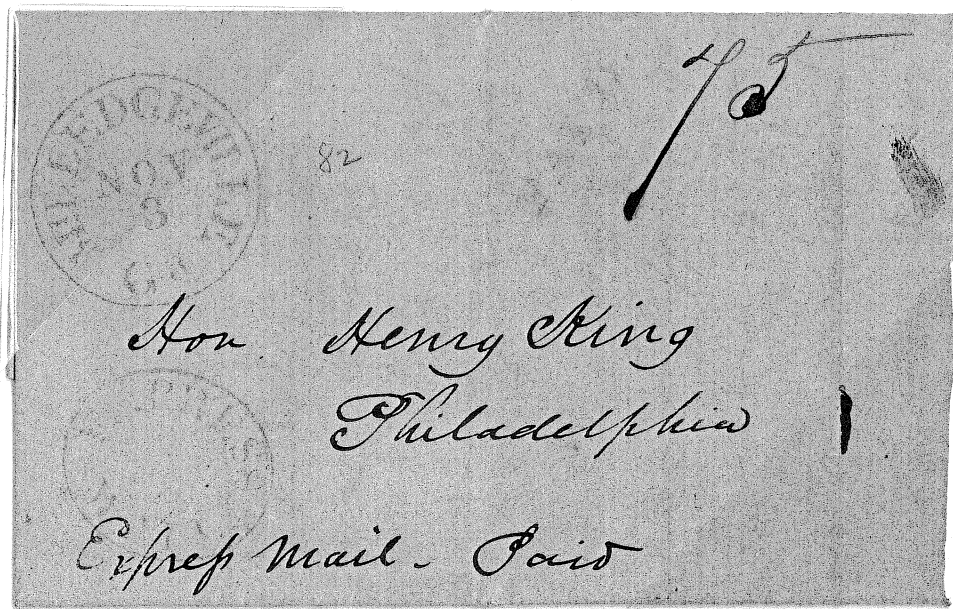 75
MILLEDGEVILLE
NOV
3
Ga
82
Hon Henry King
Philadelphia
EXPRESS
Express Mail - Paid